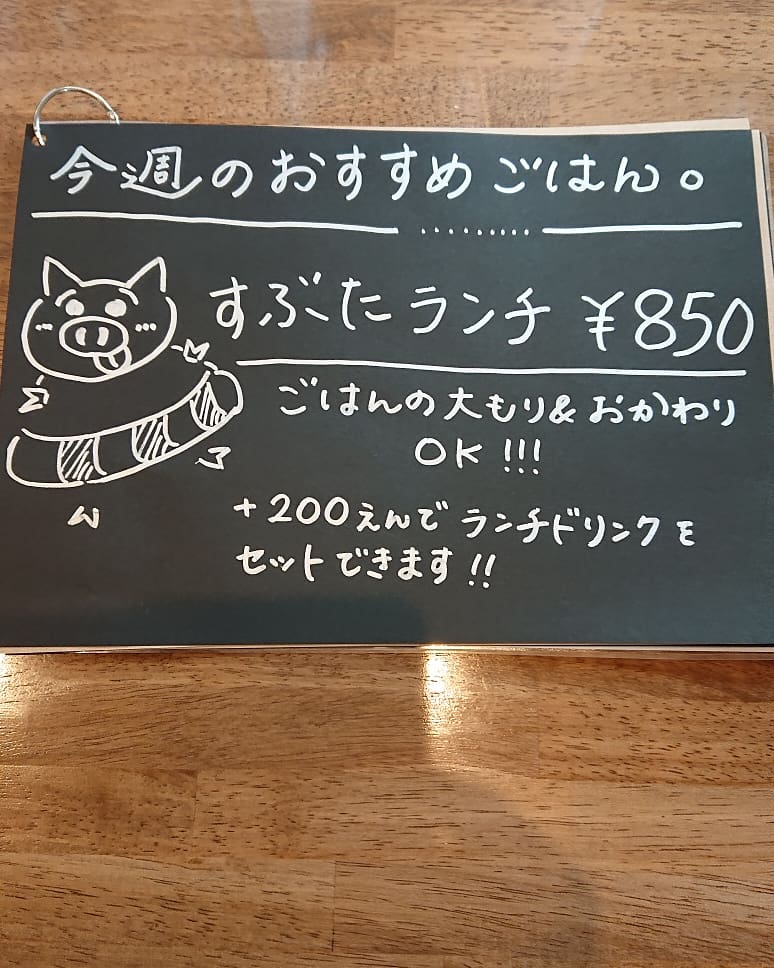 今週のおすすめごはん。
すぶたランチ ¥850
ごはんの大もり&おかわり
OK!!!
+200えんでランチドリンクを
セットできます!!